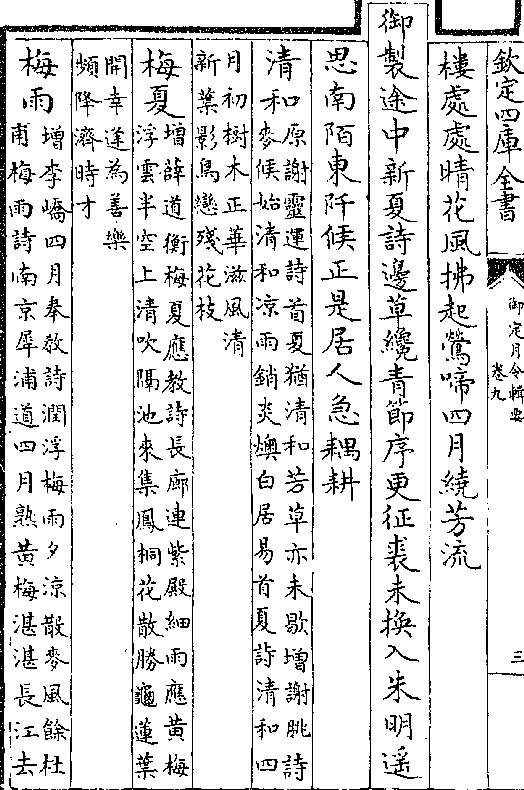 欽定四庫全書
御定月令輯要
卷九
三
樓處處晴花風拂起鶯啼四月繞芳流
御製途中新夏詩邊草纔青節序更征裘未換入朱明遥
思南陌東阡候正是居人急耦耕
清和原謝靈運詩首夏猶清和芳草亦未歇增謝朓詩
麥候始清和凉雨銷炎燠白居易首夏詩清和四
月初樹木正華滋風清
新葉影鳥戀殘花枝
梅夏增薛道衡梅夏應教詩長廊連紫殿細雨應黄梅
浮雲半空上清吹隔池來集鳳桐花散勝龜蓮葉
開幸逢為善樂
頻降濟時才
梅雨增李嶠四月奉教詩潤浮梅雨夕涼散麥風餘杜
甫梅雨詩南京犀浦道四月熟黄梅湛湛長江去